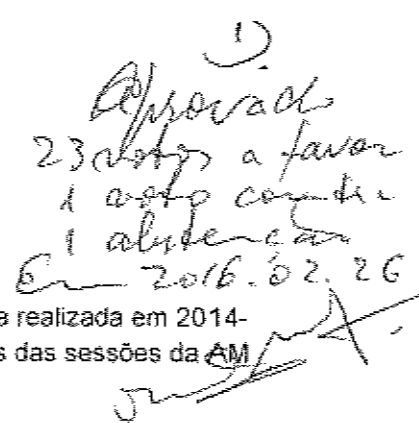 1).
Aprovado
23 votos a favor
1 voto contra
1 abstenção
Em 2016.02.26
a realizada em 2014-
s das sessões da AM